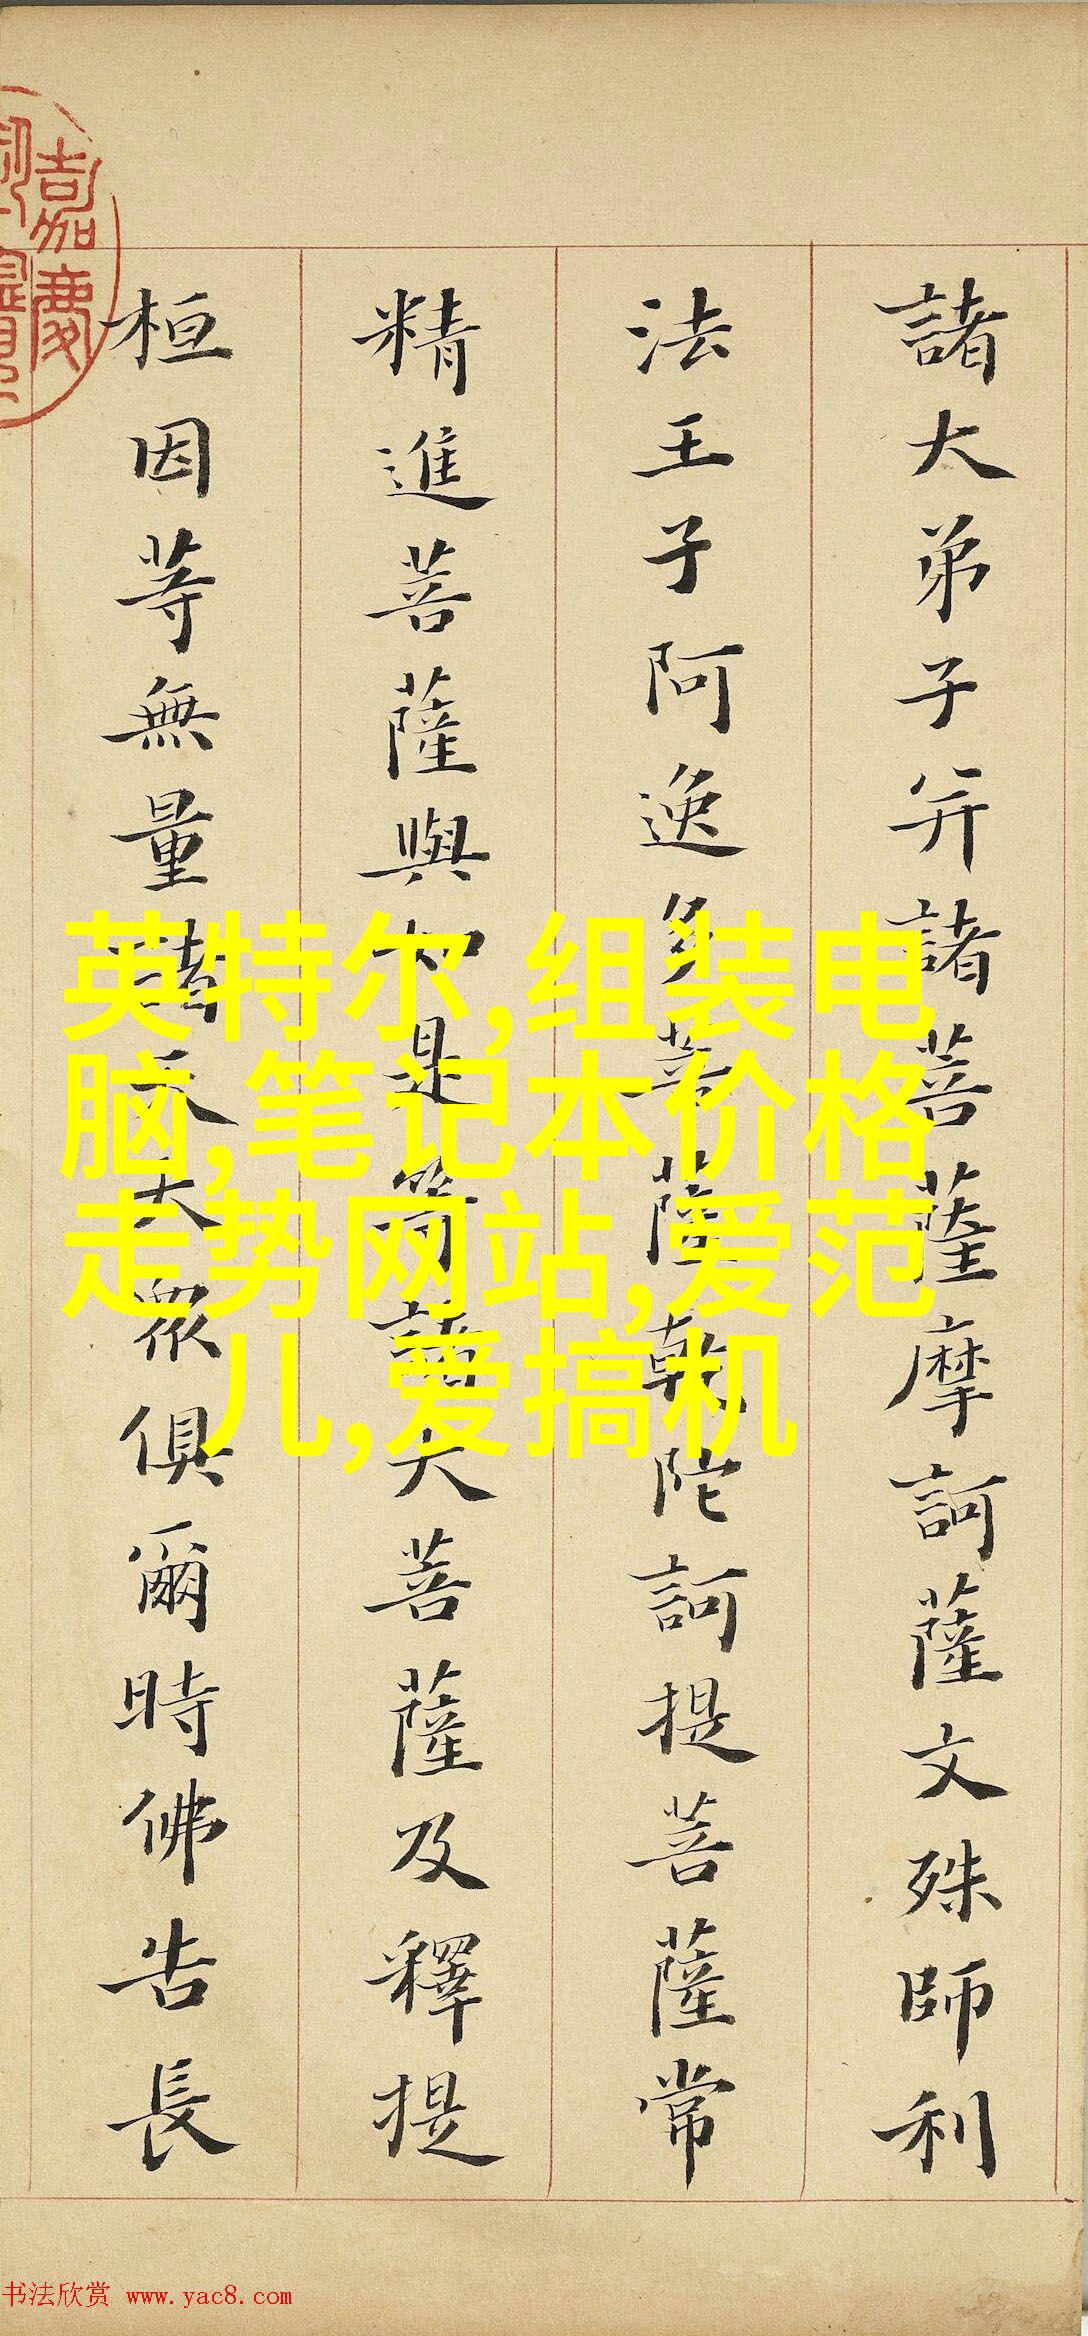 諸大弟子并諸菩薩摩訶薩文殊師利
法王子阿逸多菩薩乾陀訶提菩薩常
精進菩薩與如是等諸大菩薩及釋提
桓因等無量諸天大眾俱爾時佛告長
嘉慶
英特尔,组装电
脑,笔记本价格
走势网站,爱范
儿,爱搞机
书法欣赏 www.yac8.com